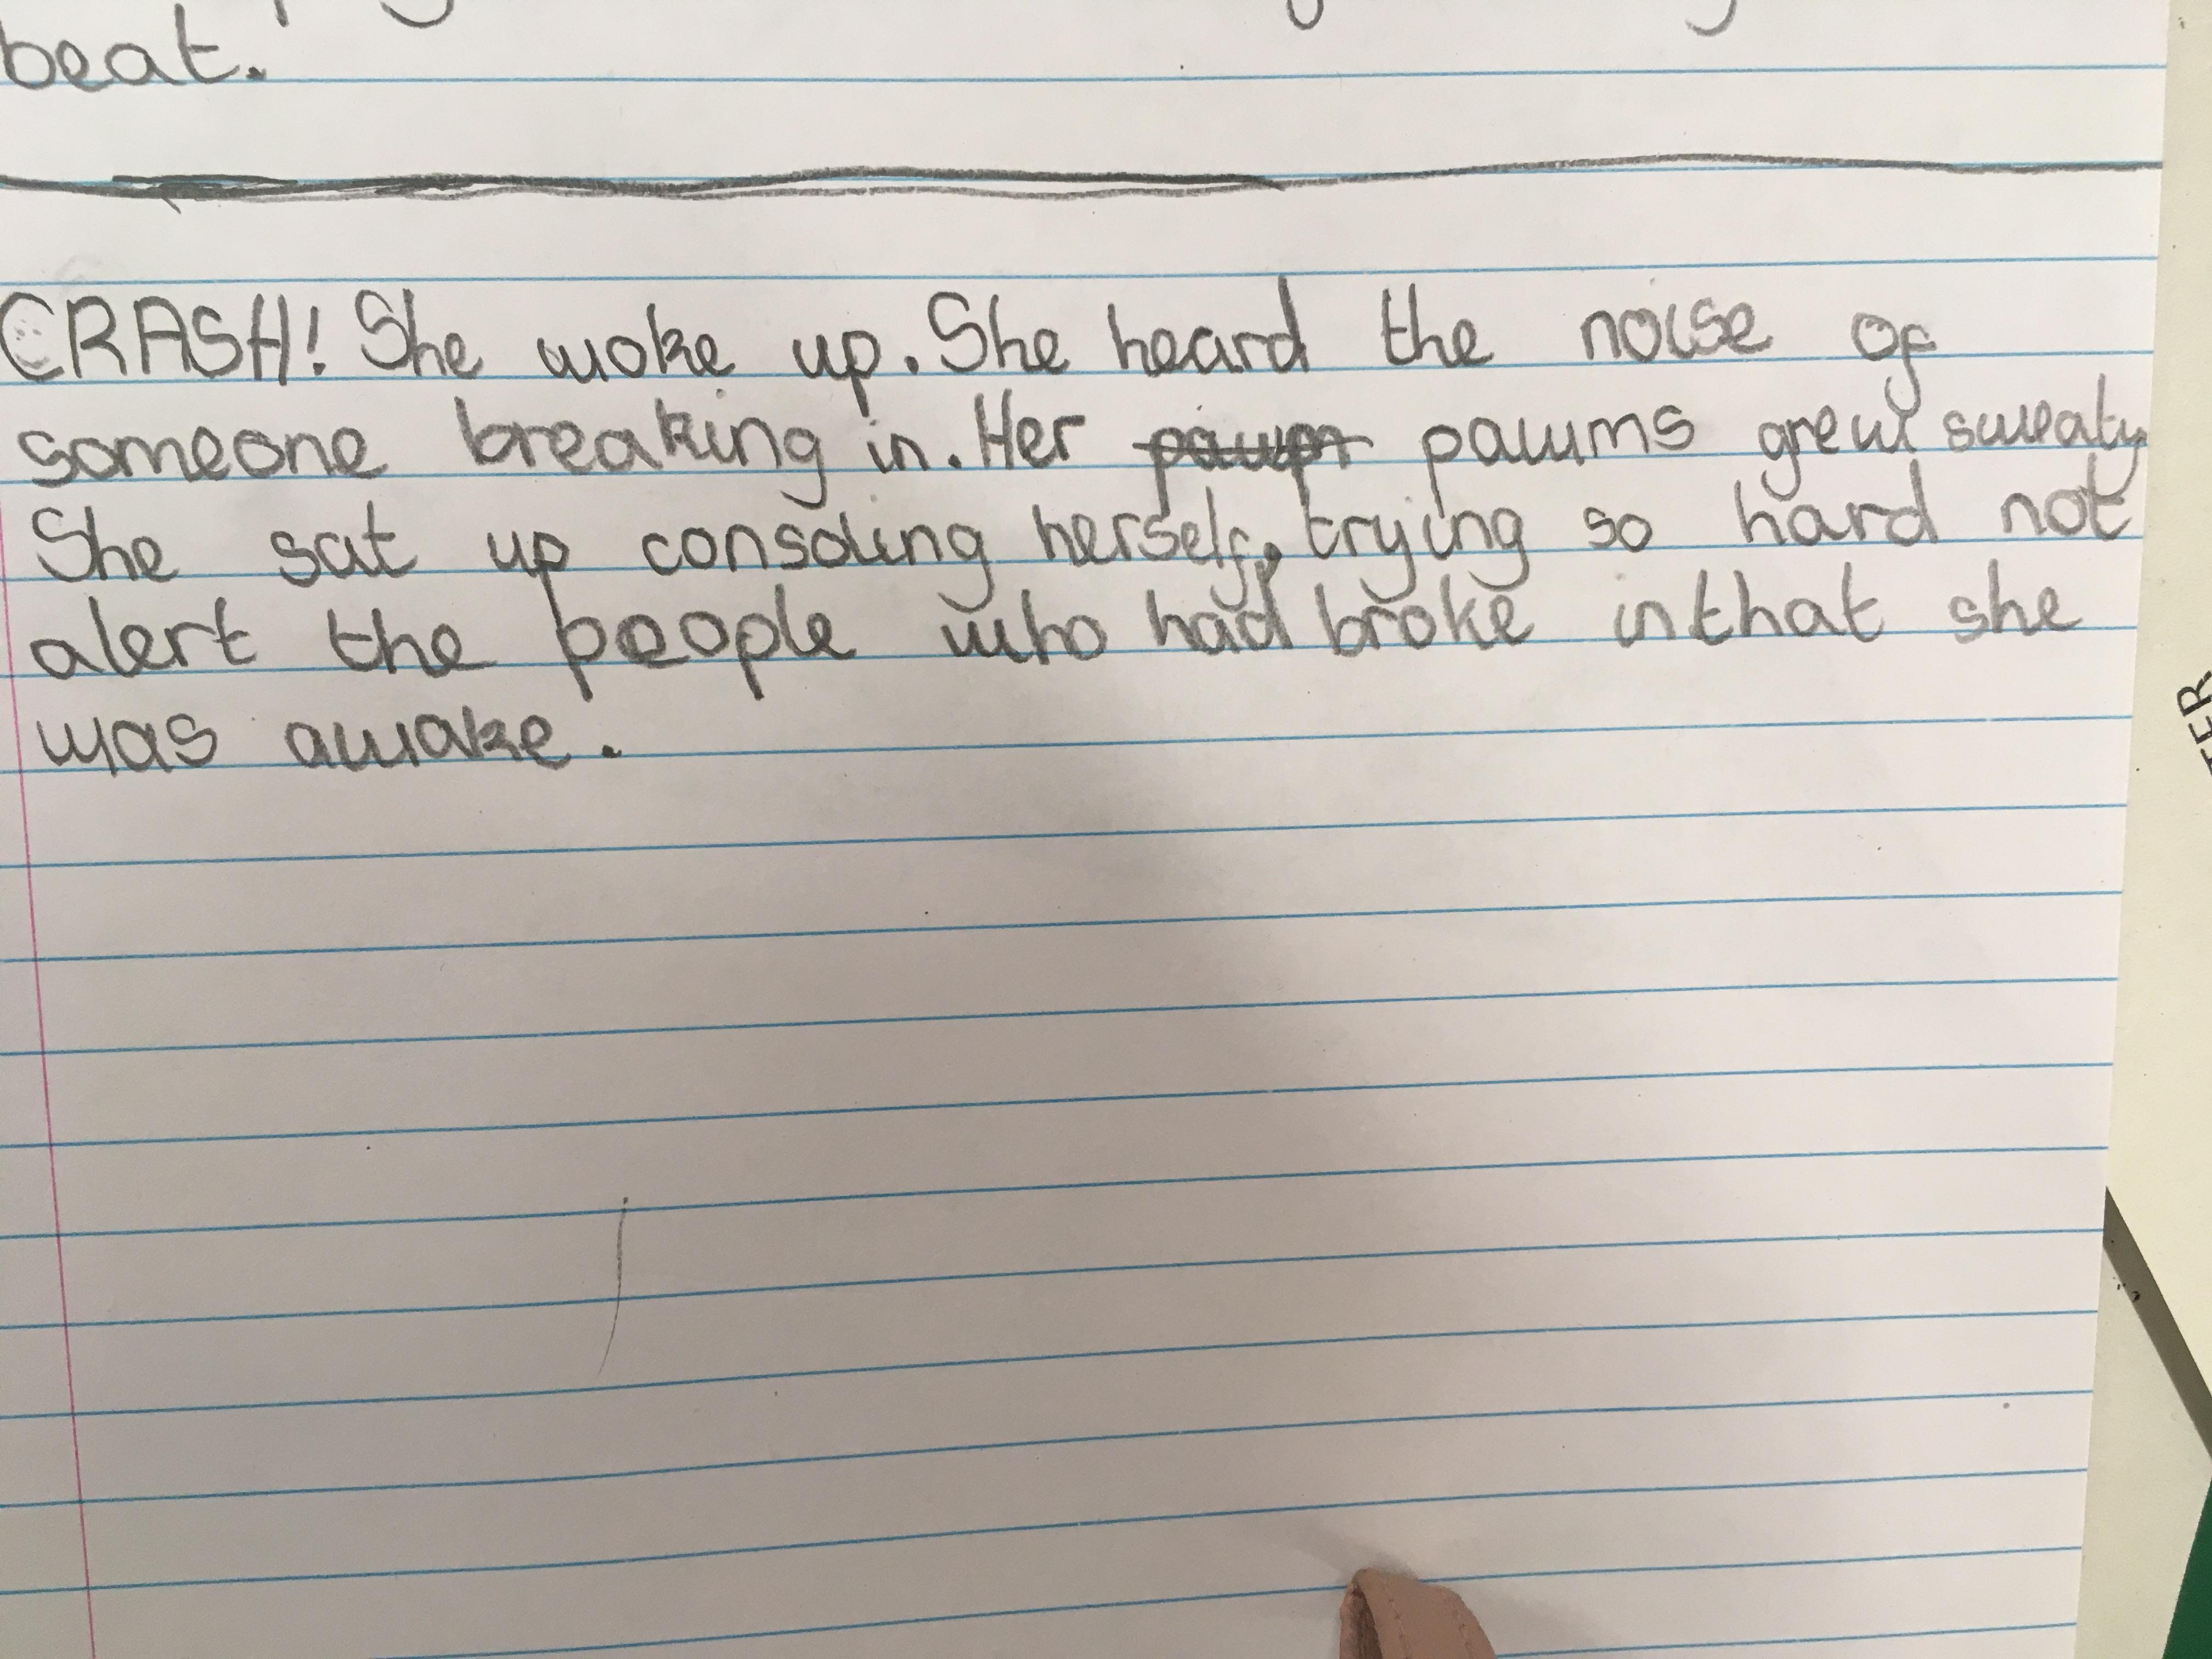 beat.
CRASH! She woke up. She heard the noise of
someone breaking in. Her pawms grew sweaty
She sat up consoling herself, trying so hard not
alert the people who had broke in that she
was awake.
TER